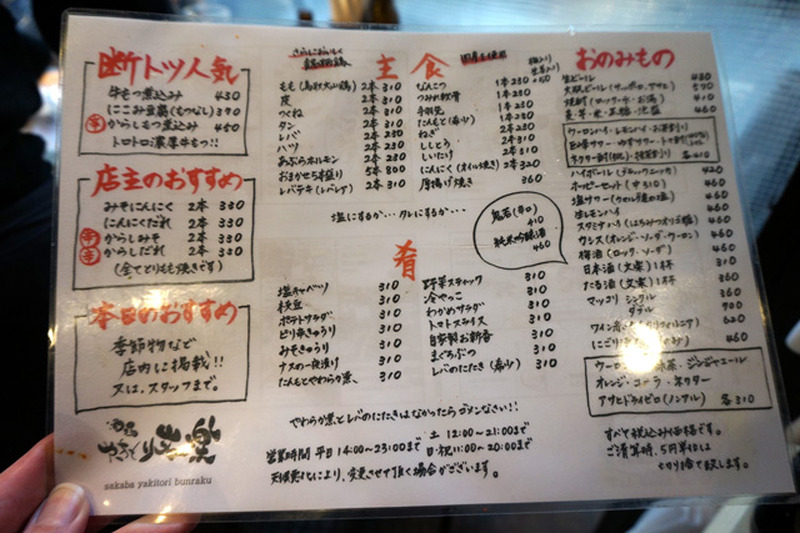 断トツ人気
牛もつ煮込み 430
にこみ豆腐(もつなし) 390
辛 からしもつ煮込み 450
トロトロ濃厚牛もつ!!
店主のおすすめ
みそにんにく 2本 330
にんにくだれ 2本 330
辛 からしみそ 2本 330
辛 からしだれ 2本 330
(全てとりもも焼きです)
本日のおすすめ
季節物など
店内に掲載!!
又は、スタッフまで。
やきとり 文楽
sakaba yakitori bunraku
主食
もも(鳥取大山鶏) 2本 310
皮 2本 310
つくね 2本 310
タン 2本 310
レバ 2本 230
ハツ 2本 230
あぶらホルモン 2本 310
おまかせ5本盛り 5本 800
レバテキ(レバレア) 2本 310
なんこつ 1本 230
つみれ軟骨 1本 230
手羽先 1本 230
たんもと(希少) 1本 230
ねぎ 2本 230
ししとう 2本 310
しいたけ 2本 310
にんにく(オイル焼き) 2本 320
厚揚げ焼き 360
塩にするか・・タレにするか・・・
鬼ころ(辛口)
410
純米吟醸酒
460
肴
塩キャベツ 310
枝豆 310
ポテトサラダ 310
ピリ辛きゅうり 310
みそきゅうり 310
ナスの一夜漬け 310
たんもとやわらか煮、 310
野菜スティック 310
冷やっこ 310
わかめサラダ 310
トマトスライス 310
自家製お新香 310
まぐろぶつ 310
レバのたたき(希少) 310
やわらか煮とレバのたたきはなかったらゴメンなさい!!
営業時間 平日 14:00~23:00まで 土 12:00~21:00まで
日・祝 11:00~20:00まで
天候悪化などにより、変更させて頂く場合がございます。
おのみもの
生ビール 480
大瓶ビール(サッポロ、アサヒ) 590
焼酎(ロック・水・お湯) 410
ウーロンハイ・レモンハイ・お茶割り
各410
ハイボール(ブラックニッカ) 420
ホッピーセット(中310) 460
塩サワー 460
生レモンハイ 460
スタミナハイ(はちみつオリゴ糖) 460
カシス(オレンジ・ソーダ・ウーロン) 460
梅酒(ロック・ソーダ) 460
日本酒(文楽)1杯 310
たる酒(文楽)1杯 360
マッコリ シングル 360
ダブル 700
620
にごり 460
ウーロン ・ジンジャエール
オレンジ・コーラ・ネクター
アサヒドライゼロ(ノンアル) 各310
すべて税込み価格です。
ご清算時、5円単位は
切り捨て致します。